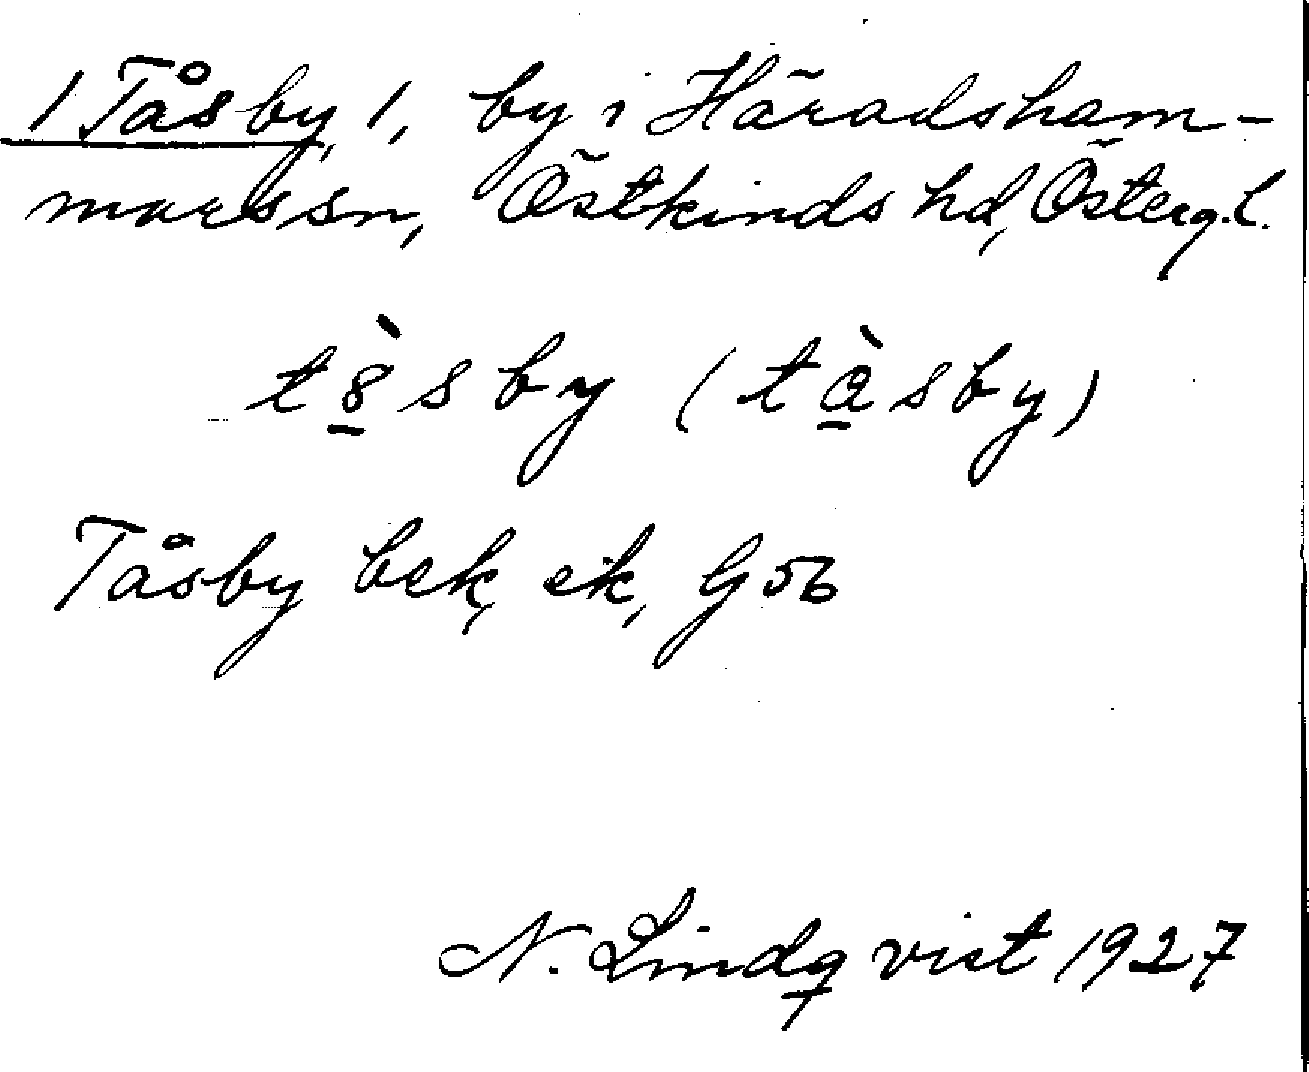 1 Tåsby 1, by i Häradsham-
mars sn, Östkinds hd, Österg. l.
tꝏ̀sby (tàsby)
Tåsby bek, ek, G 56
N. Lindqvist 1927